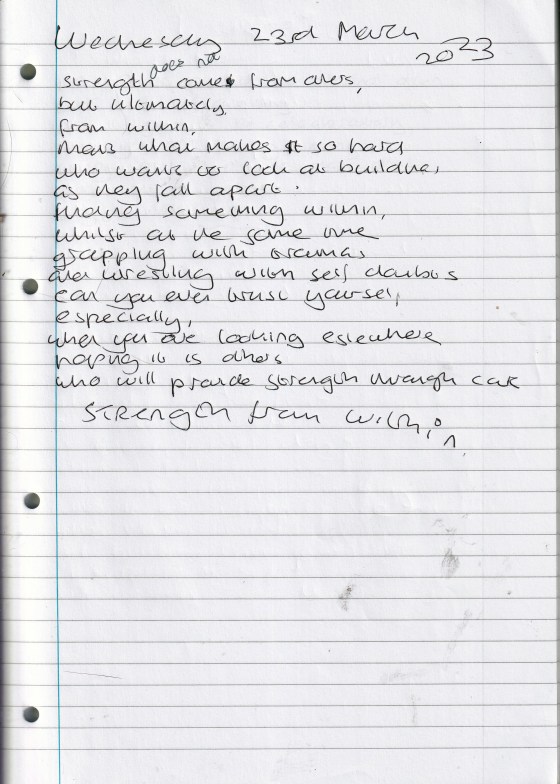 Wednesday 23rd March
2023
does not
strength comes from others,
but ultimately,
from within,
that's what makes it so hard
who wants to look at building,
as they fall apart.
finding something within,
whilst at the same time
grappling with traumas
and wrestling with self doubts
can you ever trust yourself,
especially,
when you are looking eslewhere
hoping it is others
who will provide strength through care
Strength from within.